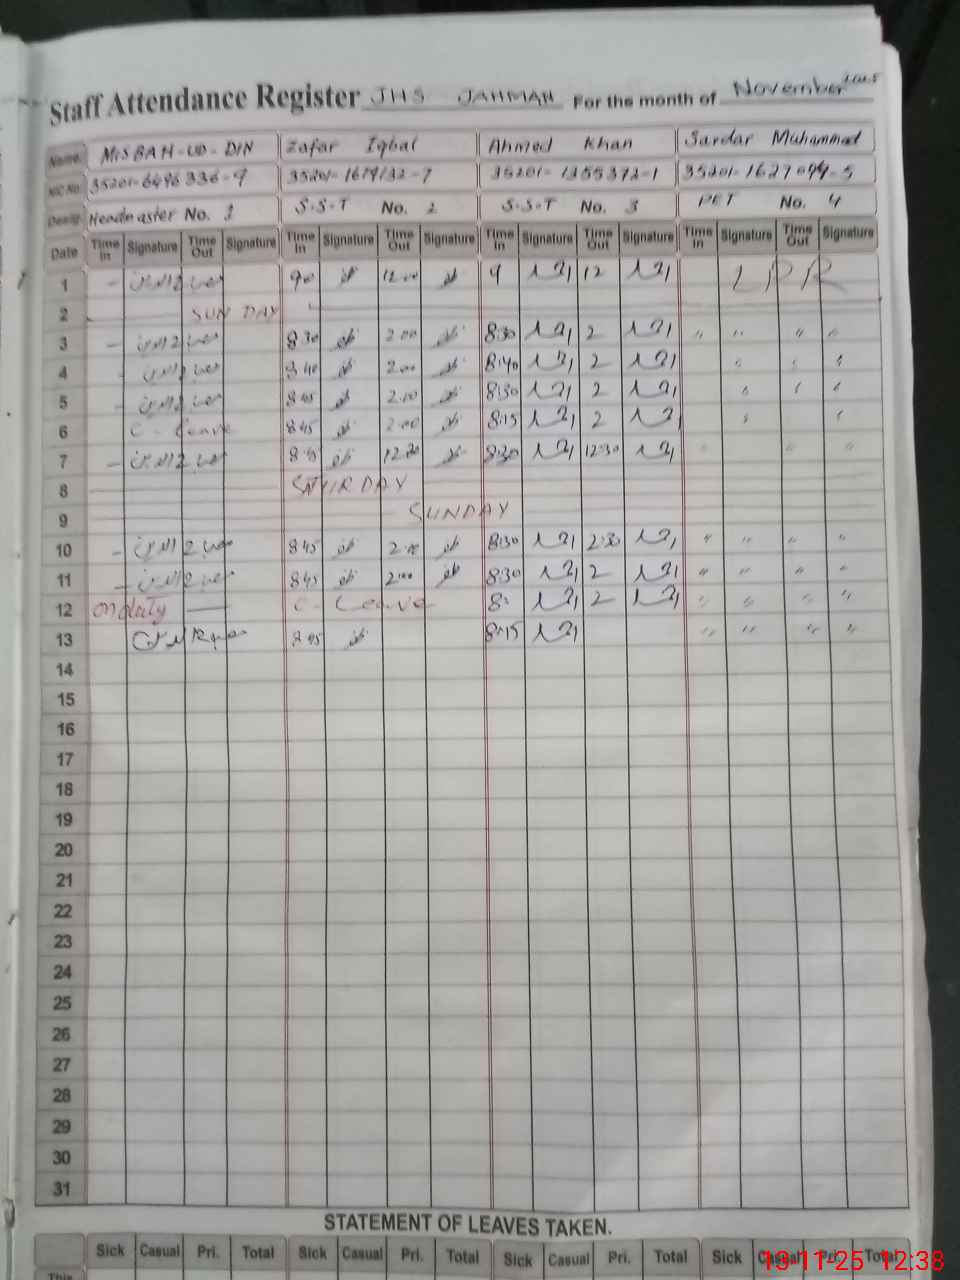 Staff Attendance Register JHS JAHMAN For the month of November 2025
Name MISBAH-UD-DIN Zafar Iqbal Ahmed Khan Sardar Muhammad
NIC No 35201-6496336-9 35201-1355372-1
Desig: Headmaster No. 1 S.S.T No. 2 S.S.T No. 3 PET No. 4
Date Time In Signature Time Out Signature Time In Signature Time Out Signature Time In Signature Time Out Signature Time In Signature Time Out Signature
1 - مصباح الدین 90 ظفر 12 00 ظفر 9 12 LPR
2 SUNDAY
3 - مصباح الدین 8 30 ظفر 2 00 ظفر 8:30 2 " " " "
4 - مصباح الدین 8 40 ظفر 2 00 ظفر 8:40 2 " " "
5 - مصباح الدین 8 45 ظفر 2 00 ظفر 8:30 2 " " "
6 C - Leave 8 45 ظفر 2 00 ظفر 8:15 2 "
7 - مصباح الدین 8 45 ظفر 12 30 ظفر 8:30 12:30 " " "
8 SATURDAY
9 SUNDAY
10 - مصباح الدین 8 45 ظفر 2 00 ظفر 8:30 2:30 " " " "
11 - مصباح الدین 8 45 ظفر 2 00 ظفر 8:30 2 " " " "
12 on duty — C - Leave 8: 2 " " " "
13 مصباح الدین 8 45 ظفر 8:15 " " " "
14
15
16
17
18
19
20
21
22
23
24
25
26
27
28
29
30
31
STATEMENT OF LEAVES TAKEN.
Sick Casual Pri. Total Sick Casual Pri. Total Sick Casual Pri. Total Sick Casual Pri. Total
This
13-11-25 12:38